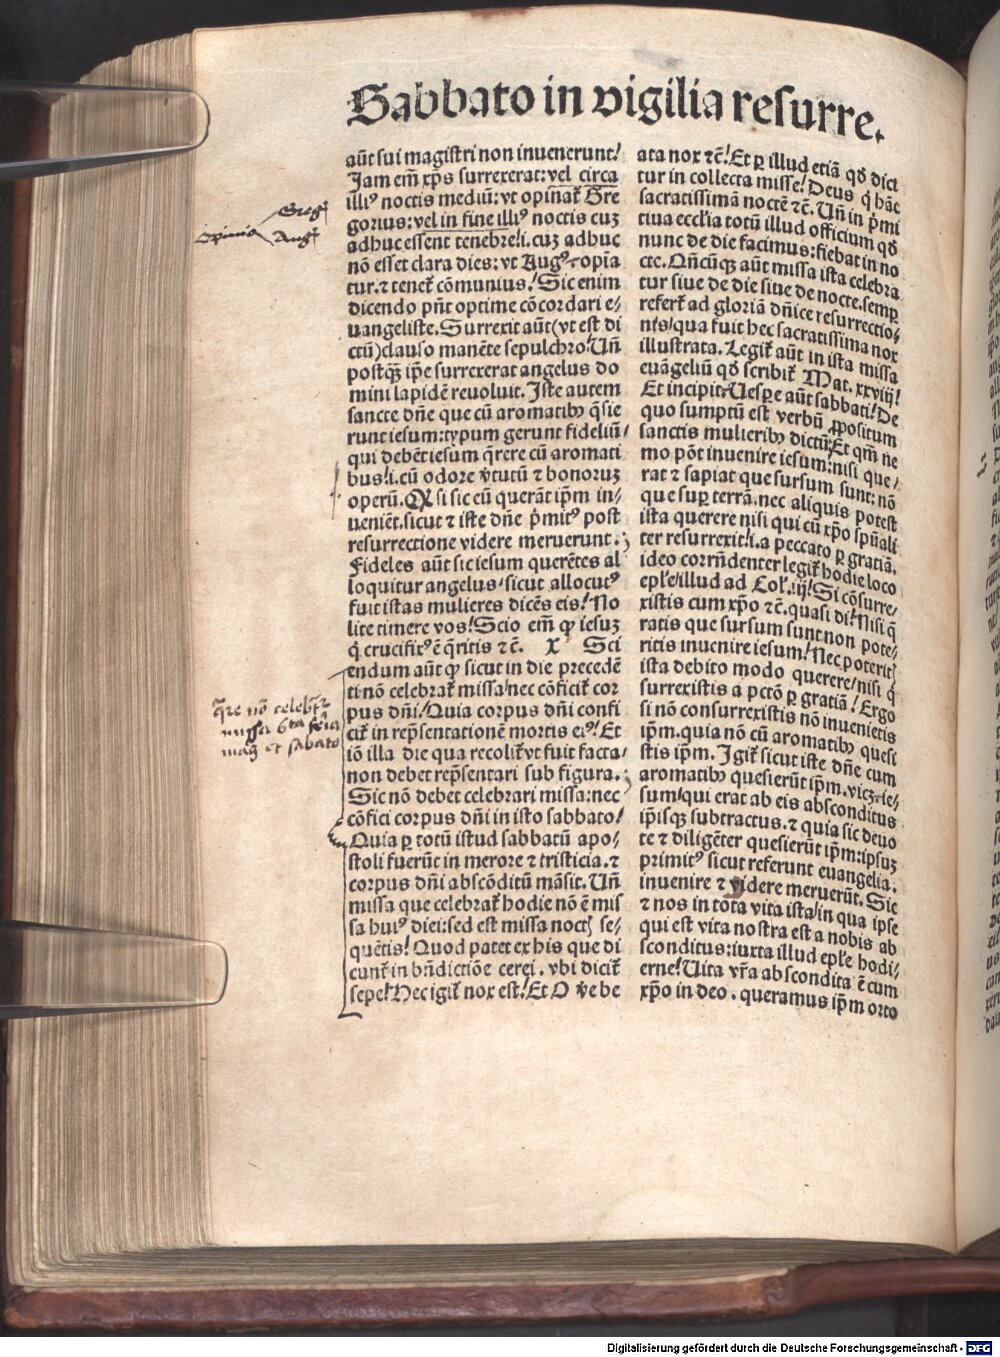 Sabbato in vigilia resurre.
aūt sui magistri non inuenerunt!
Jam em̄ xp̄s surrexerat: vel circa
illiꝰ noctis mediū: vt opinat᷑ Gre
gorius: vel in fine illiꝰ noctis cuꝫ
adhuc essent tenebre!i. cuꝫ adhuc
nō esset clara dies: vt Augꝰ. opīa
tur. ⁊ tenet᷑ cōmunius! Sic enim
dicendo pn̄t optime cōcordari e/
uangeliste. Surrexit aūt (vt est di
ctū) clauso manēte sepulchro! Un̄
postqꝫ ip̄e surrexerat angelus do
mini lapidē reuoluit. Iste autem
sancte dn̄e que cū aromatibꝰ q̄sie
runt iesum: typum gerunt fideliū/
qui debēt iesum q̄rere cū aromati
bus!i. cū odore v̄tutū ⁊ bonoruꝫ
operū. Ꝙ si sic eū querāt ip̄m in/
ueniēt. sicut ⁊ iste dn̄e p̄mitꝰ post
resurrectione videre meruerunt.
Fideles aūt sic iesum querētes al
loquitur angelus/ sicut allocutꝰ
fuit istas mulieres dicēs eis! No
lite timere vos! Scio em̄ ꝙ iesuꝫ
q̇ crucifixꝰ ē q̄ritis ⁊c̄. X Sci
endum aūt ꝙ sicut in die precedē
ti nō celebrat᷑ missa/ nec cōficit᷑ cor
pus dn̄i! Quia corpus dn̄i confi
cit᷑ in rep̄sentationē mortis eiꝰ! Et
iō illa die qua recolit᷑ vt fuit facta/
non debet rep̄sentari sub figura.
Sic nō debet celebrari missa: nec
cōfici corpus dn̄i in isto sabbato!
Quia ꝑ totū istud sabbatū apo/
stoli fuerūt in merore ⁊ tristicia. ⁊
corpus dn̄i abscōditū māsit. Un̄
missa que celebrat᷑ hodie nō ē mis
sa huiꝰ diei: sed est missa noctꝭ se/
quētis! Quod patet ex his que di
cunt᷑ in bn̄dictiōe cerei. vbi dicit᷑
sepe! Hec igit᷑ nox est! Et O v̄e be
ata nox ⁊c̄! Et ꝑ illud etiā qd̄ dici
tur in collecta misse! Deus q̇ hāc
sacratissimā noctē ⁊c̄. Un̄ in p̄mi
tiua ecclīa totū illud officium qd̄
nunc de die facimus: fiebat in no
cte. Qn̄cūqꝫ aūt missa ista celebra
tur siue de die siue de nocte. semꝑ
refert᷑ ad gloriā dn̄ice resurrectio/
nis/ qua fuit hec sacratissima nox
illustrata. Legit᷑ aūt in ista missa
euāgeliū qd̄ scribit᷑ Mat. xxviij!
Et incipit. Uesꝑe aūt sabbati! De
quo sumptū est verbū ꝓpositum
sanctis mulieribꝰ dictū. Et qm̄ ne
mo pōt inuenire iesum: nisi que/
rat ⁊ sapiat que sursum sunt: nō
que suꝑ terrā. nec aliquis potest
ista querere nisi qui cū xp̄o spūali
ter resurrexit!i. a peccato ꝑ gratiā.
ideo corrn̄denter legit᷑ hodie loco
ep̄le/ illud ad Col̄. iij! Si cōsurre/
xistis cum xp̄o ⁊c̄. quasi di! Nisi q̄
ratis que sursum sunt non pote/
ritis inuenire iesum! Nec poteritꝭ
ista debito modo querere/ nisi q̇
surrexistis a pctō ꝑ gratiā! Ergo
si nō consurrexistis nō inuenietis
ip̄m. quia nō cū aromatibꝰ quesi
stis ip̄m. Igit᷑ sicut iste dn̄e cum
aromatibꝰ quesierūt ip̄m. vicꝫ. ie/
sum/ qui erat ab eis absconditus
ip̄isqꝫ subtractus. ⁊ quia sic deuo
te ⁊ diligēter quesierūt ip̄m: ipsuꝫ
primitꝰ sicut referunt euangelia.
inuenire ⁊ videre meruerūt. Sic
⁊ nos in tota vita ista/ in qua ipse
qui est vita nostra est a nobis ab
sconditus: iuxta illud ep̄le hodi/
erne! Uita vr̄a abscondita ē cum
xp̄o in deo. queramus ip̄m orto
Greg᷑
Opinio
Aug᷑
q̄re nō celebr᷑
missa 6ta feria
mag᷑ et sabato
Digitalisierung gefördert durch die Deutsche Forschungsgemeinschaft - DFG